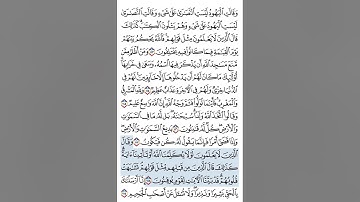 وَقَالَتِ ٱلْيَهُودُ لَيْسَتِ ٱلنَّصَٰرَىٰ عَلَىٰ شَىْءٍ وَقَالَتِ ٱلنَّصَٰرَىٰ
لَيْسَتِ ٱلْيَهُودُ عَلَىٰ شَىْءٍ وَهُمْ يَتْلُونَ ٱلْكِتَٰبَ كَذَٰلِكَ
قَالَ ٱلَّذِينَ لَا يَعْلَمُونَ مِثْلَ قَوْلِهِمْ فَٱللَّهُ يَحْكُمُ بَيْنَهُمْ
يَوْمَ ٱلْقِيَٰمَةِ فِيمَا كَانُوا۟ فِيهِ يَخْتَلِفُونَ ۝ وَمَنْ أَظْلَمُ مِمَّن
مَّنَعَ مَسَٰجِدَ ٱللَّهِ أَن يُذْكَرَ فِيهَا ٱسْمُهُۥ وَسَعَىٰ فِى خَرَابِهَآ
أُو۟لَٰٓئِكَ مَا كَانَ لَهُمْ أَن يَدْخُلُوهَآ إِلَّا خَآئِفِينَ لَهُمْ فِى
ٱلدُّنْيَا خِزْىٌ وَلَهُمْ فِى ٱلْءَاخِرَةِ عَذَابٌ عَظِيمٌ ۝ وَلِلَّهِ ٱلْمَشْرِقُ
وَٱلْمَغْرِبُ فَأَيْنَمَا تُوَلُّوا۟ فَثَمَّ وَجْهُ ٱللَّهِ إِنَّ ٱللَّهَ وَٰسِعٌ عَلِيمٌ ۝
وَقَالُوا۟ ٱتَّخَذَ ٱللَّهُ وَلَدًا سُبْحَٰنَهُۥ بَل لَّهُۥ مَا فِى ٱلسَّمَٰوَٰتِ
وَٱلْأَرْضِ كُلٌّ لَّهُۥ قَٰنِتُونَ ۝ بَدِيعُ ٱلسَّمَٰوَٰتِ وَٱلْأَرْضِ
وَإِذَا قَضَىٰٓ أَمْرًا فَإِنَّمَا يَقُولُ لَهُۥ كُن فَيَكُونُ ۝ وَقَالَ
ٱلَّذِينَ لَا يَعْلَمُونَ لَوْلَا يُكَلِّمُنَا ٱللَّهُ أَوْ تَأْتِينَآ ءَايَةٌ
كَذَٰلِكَ قَالَ ٱلَّذِينَ مِن قَبْلِهِم مِّثْلَ قَوْلِهِمْ تَشَٰبَهَتْ
قُلُوبُهُمْ قَدْ بَيَّنَّا ٱلْءَايَٰتِ لِقَوْمٍ يُوقِنُونَ ۝ إِنَّآ أَرْسَلْنَٰكَ
بِٱلْحَقِّ بَشِيرًا وَنَذِيرًا وَلَا تُسْـَٔلُ عَنْ أَصْحَٰبِ ٱلْجَحِيمِ ۝